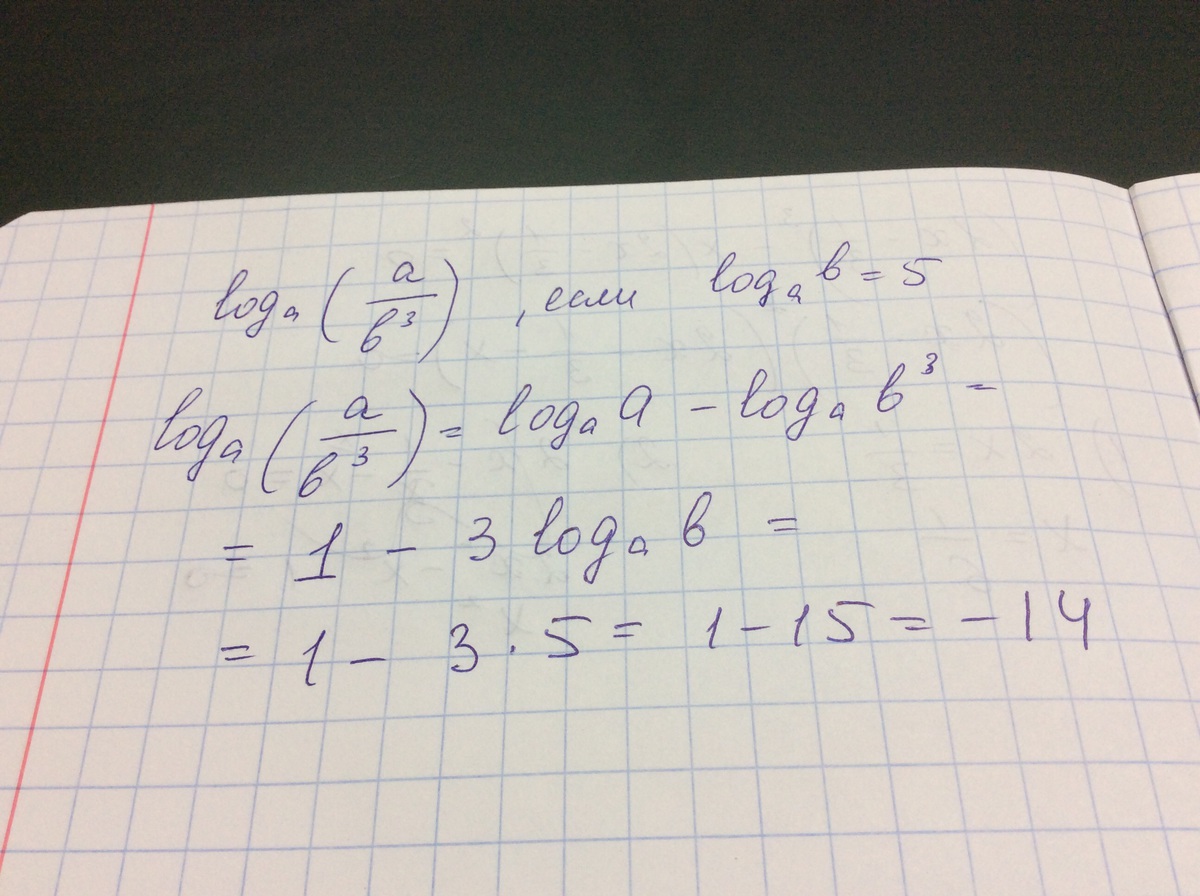 logₐ(a/b³), если logₐ b = 5
logₐ(a/b³) = logₐ a − logₐ b³ =
= 1 − 3 logₐ b =
= 1 − 3 · 5 = 1 − 15 = −14